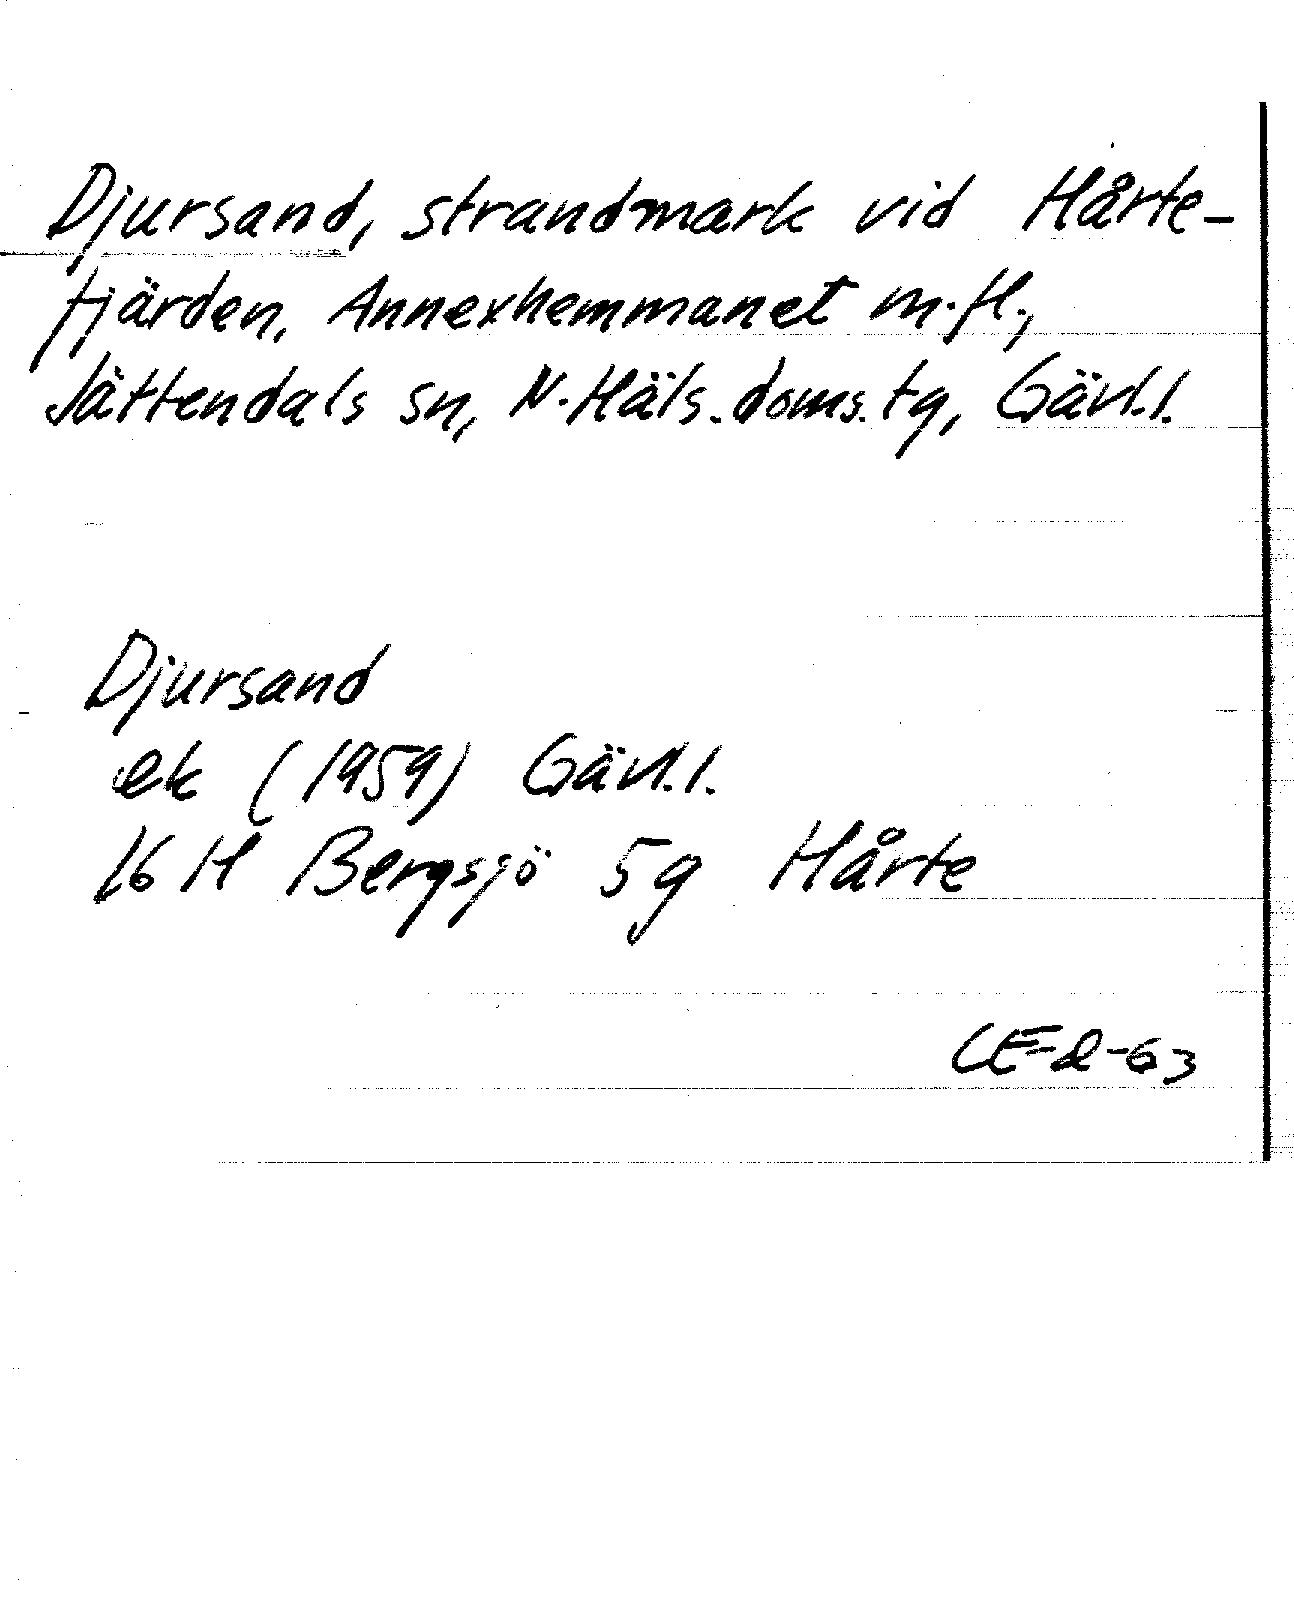 Djursand, strandmark vid Hårte-
fjärden, Annexhemmanet m.fl.,
Jättendals sn, N.Häls.doms.tg, Gävl.l.
Djursand
ek (1959) Gävl.l.
16 H Bergsjö 5g Hårte
CE-2-63